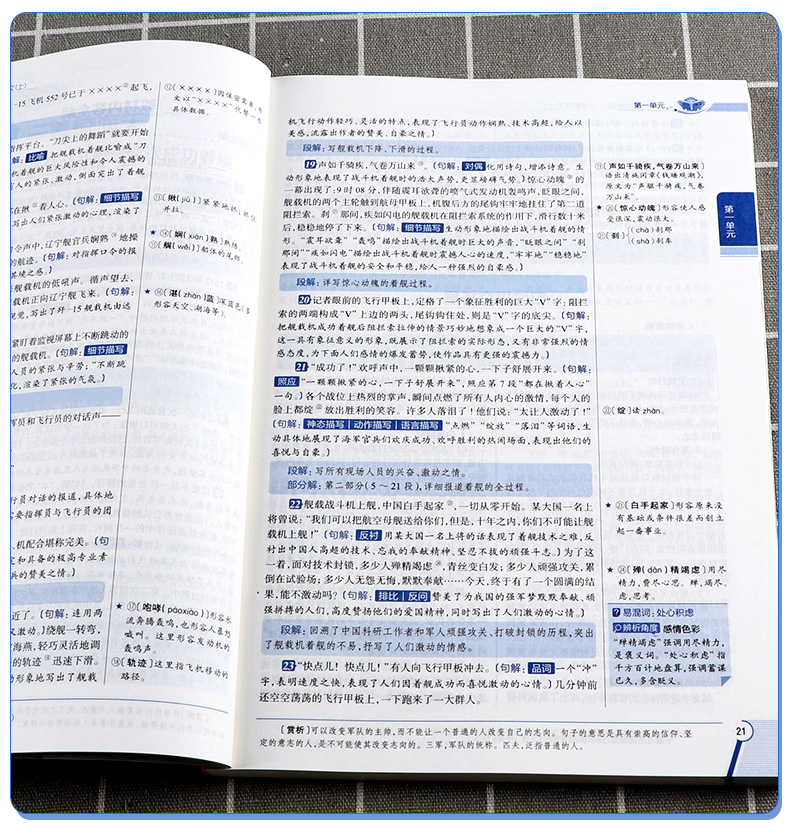 文(上)
-15飞机552号已于××××起飞,
挥平台。“刀尖上的舞蹈”就要开始
解:比喻 把舰载机着舰比喻成“刀
机着舰的巨大风险性和令人震撼的
人的紧张、激动,侧面突出了着舰
在揪着人心。(句解:细节描写
写出人们张激动的心理,渲染了
令声中,辽宁舰官兵娴熟地操
的航迹。(句解:对指挥口令的报
舰载机的低吼声。循声望去,
载机正向辽宁舰飞来。(句解:
觉,写出了歼-15舰载机由远
紧盯着监视屏幕上不断跳动的
的舰载机。(句解:细节描写
人员的紧张与辛劳;“不断跳
化,渲染了紧张的气氛。)
挥员和飞行员的对话声——
行员对话的报道,具体地
指挥员与飞行员的团
、机配合堪称完美。(句
和具备的极高专业素
兵的赞美之情。)
近了。(句解:连用两
激动。)绕舰一转弯,
海燕,轻巧灵活地调
的轨迹 迅速下滑。
形象地写出了舰载
⑫(××××)因保密需要,
文以“××××”代替
具体数据。
⑬(揪(jiū))紧紧地抓;抓住
并拉。
★⑭(娴(xián)熟)熟练。
⑮(艉(wěi))船体的尾部。
★⑯(湛(zhàn)蓝)深蓝色(多
形容天空、湖海等)。
★⑰(咆哮(páoxiào))形容水
流奔腾轰鸣,也形容人暴怒
喊叫。这里形容发动机的
轰鸣声。
⑱(轨迹)这里指飞机移动的
路径。
第一单元
机飞行动作轻巧、灵活的特点,表现了飞行员动作娴熟、技术高超,给人以
美感,流露出作者的赞美、自豪之情。)
段解:写舰载机下降、下滑的过程。
19声如千骑疾,气卷万山来⑲。(句解:对偶 化用诗句,增添诗意。生
动形象地表现了战斗机着舰时的浩大声势,更显磅礴气势。)惊心动魄⑳的
一幕出现了:9时08分,伴随震耳欲聋的喷气式发动机轰鸣声,眨眼之间,
舰载机的两个主轮触到航母甲板上,机腹后方的尾钩牢牢地挂住了第二道
阻拦索。刹㉑那间,疾如闪电的舰载机在阻拦索系统的作用下,滑行数十米
后,稳稳地停了下来。(句解:细节描写 生动形象地描绘出战斗机着舰的情
形。“震耳欲聋”“轰鸣”描绘出战斗机着舰时巨大的声音,“眨眼之间”“刹
那间”“疾如闪电”描绘出战斗机着舰时震撼人心的速度,“牢牢地”“稳稳地”
表现了战斗机着舰的安全和平稳,给人一种强烈的自豪感。)
段解:详写惊心动魄的着舰过程。
20记者眼前的飞行甲板上,定格了一个象征胜利的巨大“V”字:阻拦
索的两端构成“V”上边的两头,尾钩钩住处,则是“V”字的底尖。(句解:
把舰载机成功着舰后阻拦索拉伸的情景巧妙地想象成一个巨大的“V”字,
这一具有象征意义的形象,既展示了阻拦索的实际形态,又有非常强烈的情
感态度,为下面人们感情的爆发蓄势,使作品具有更强的震撼力。)
21“成功了!”欢呼声中,一颗颗揪紧的心,一下子舒展开来。(句解:
照应 “一颗颗揪紧的心,一下子舒展开来”,照应第7段“都在揪着人心”
一句。)各个战位上热烈的掌声,瞬间点燃了所有人内心的激情,每个人的
脸上都绽㉒放出胜利的笑容。许多人落泪了!他们说:“太让人激动了!”
(句解:神态描写|动作描写|语言描写 “点燃”“绽放”“落泪”等词语,生
动具体地展现了海军官兵们欢庆成功、欢呼胜利的热闹场面,表现出他们的
喜悦与自豪。)
段解:写所有现场人员的兴奋、激动之情。
部分解:第二部分(5~21段),详细报道着舰的全过程。
22舰载战斗机上舰,中国白手起家㉓,一切从零开始。某大国一名上
将曾说:“我们可以把航空母舰送给你们,但是,十年之内,你们不可能让舰
载机上舰!”(句解:反衬 用某大国一名上将的话表现了着舰技术之难,反
衬出中国人高超的技术、忠贞的奉献精神、坚忍不拔的顽强斗志。)为了这
一着,面对技术封锁,多少人殚精竭虑㉔,青丝变白发;多少人顽强攻关,累
倒在试验场;多少人无怨无悔,默默奉献……今天,终于有了一个圆满的结
果,能不激动吗?(句解:排比|反问 赞美了为我国的强军梦默默奉献、顽
强拼搏的人们,高度赞扬他们的爱国精神,同时写出了人们激动的心情。)
段解:回溯了中国科研工作者和军人顽强攻关、打破封锁的历程,突出
了舰载机着舰的不易,抒写了人们激动的情感。
23“快点儿!快点儿!”有人向飞行甲板冲去。(句解:品词 一个“冲”
字,表明速度之快,表现了人们因着舰成功而喜悦激动的心情。)几分钟前
还空空荡荡的飞行甲板上,一下跑来了一大群人。
⑲(声如千骑疾,气卷万山来)
语出清施闰章《钱塘观潮》,
原文为“声驱千骑疾,气卷
万山来”。
★⑳(惊心动魄)形容使人感
受很深,震动很大。
㉑(刹){(chà)刹那
(shā)刹车
㉒(绽)读zhàn。
★㉓(白手起家)形容原来没
有基础或条件很差而创立
起一番事业。
★㉔(殚(dān)精竭虑)用尽
精力,费尽心思。殚、竭,尽。
虑,思考。
?易混词:处心积虑
辨析角度 感情色彩
“殚精竭虑”强调用尽精力,
是褒义词。“处心积虑”指
千方百计地盘算,强调蓄谋
已久,多含贬义。
第一单元
[赏析]可以改变军队的主帅,而不能让一个普通的人改变自己的志向。句子的意思是具有崇高的信仰、坚
定的意志的人,是不可能使其改变志向的。三军,军队的统称。匹夫,泛指普通的人。
21